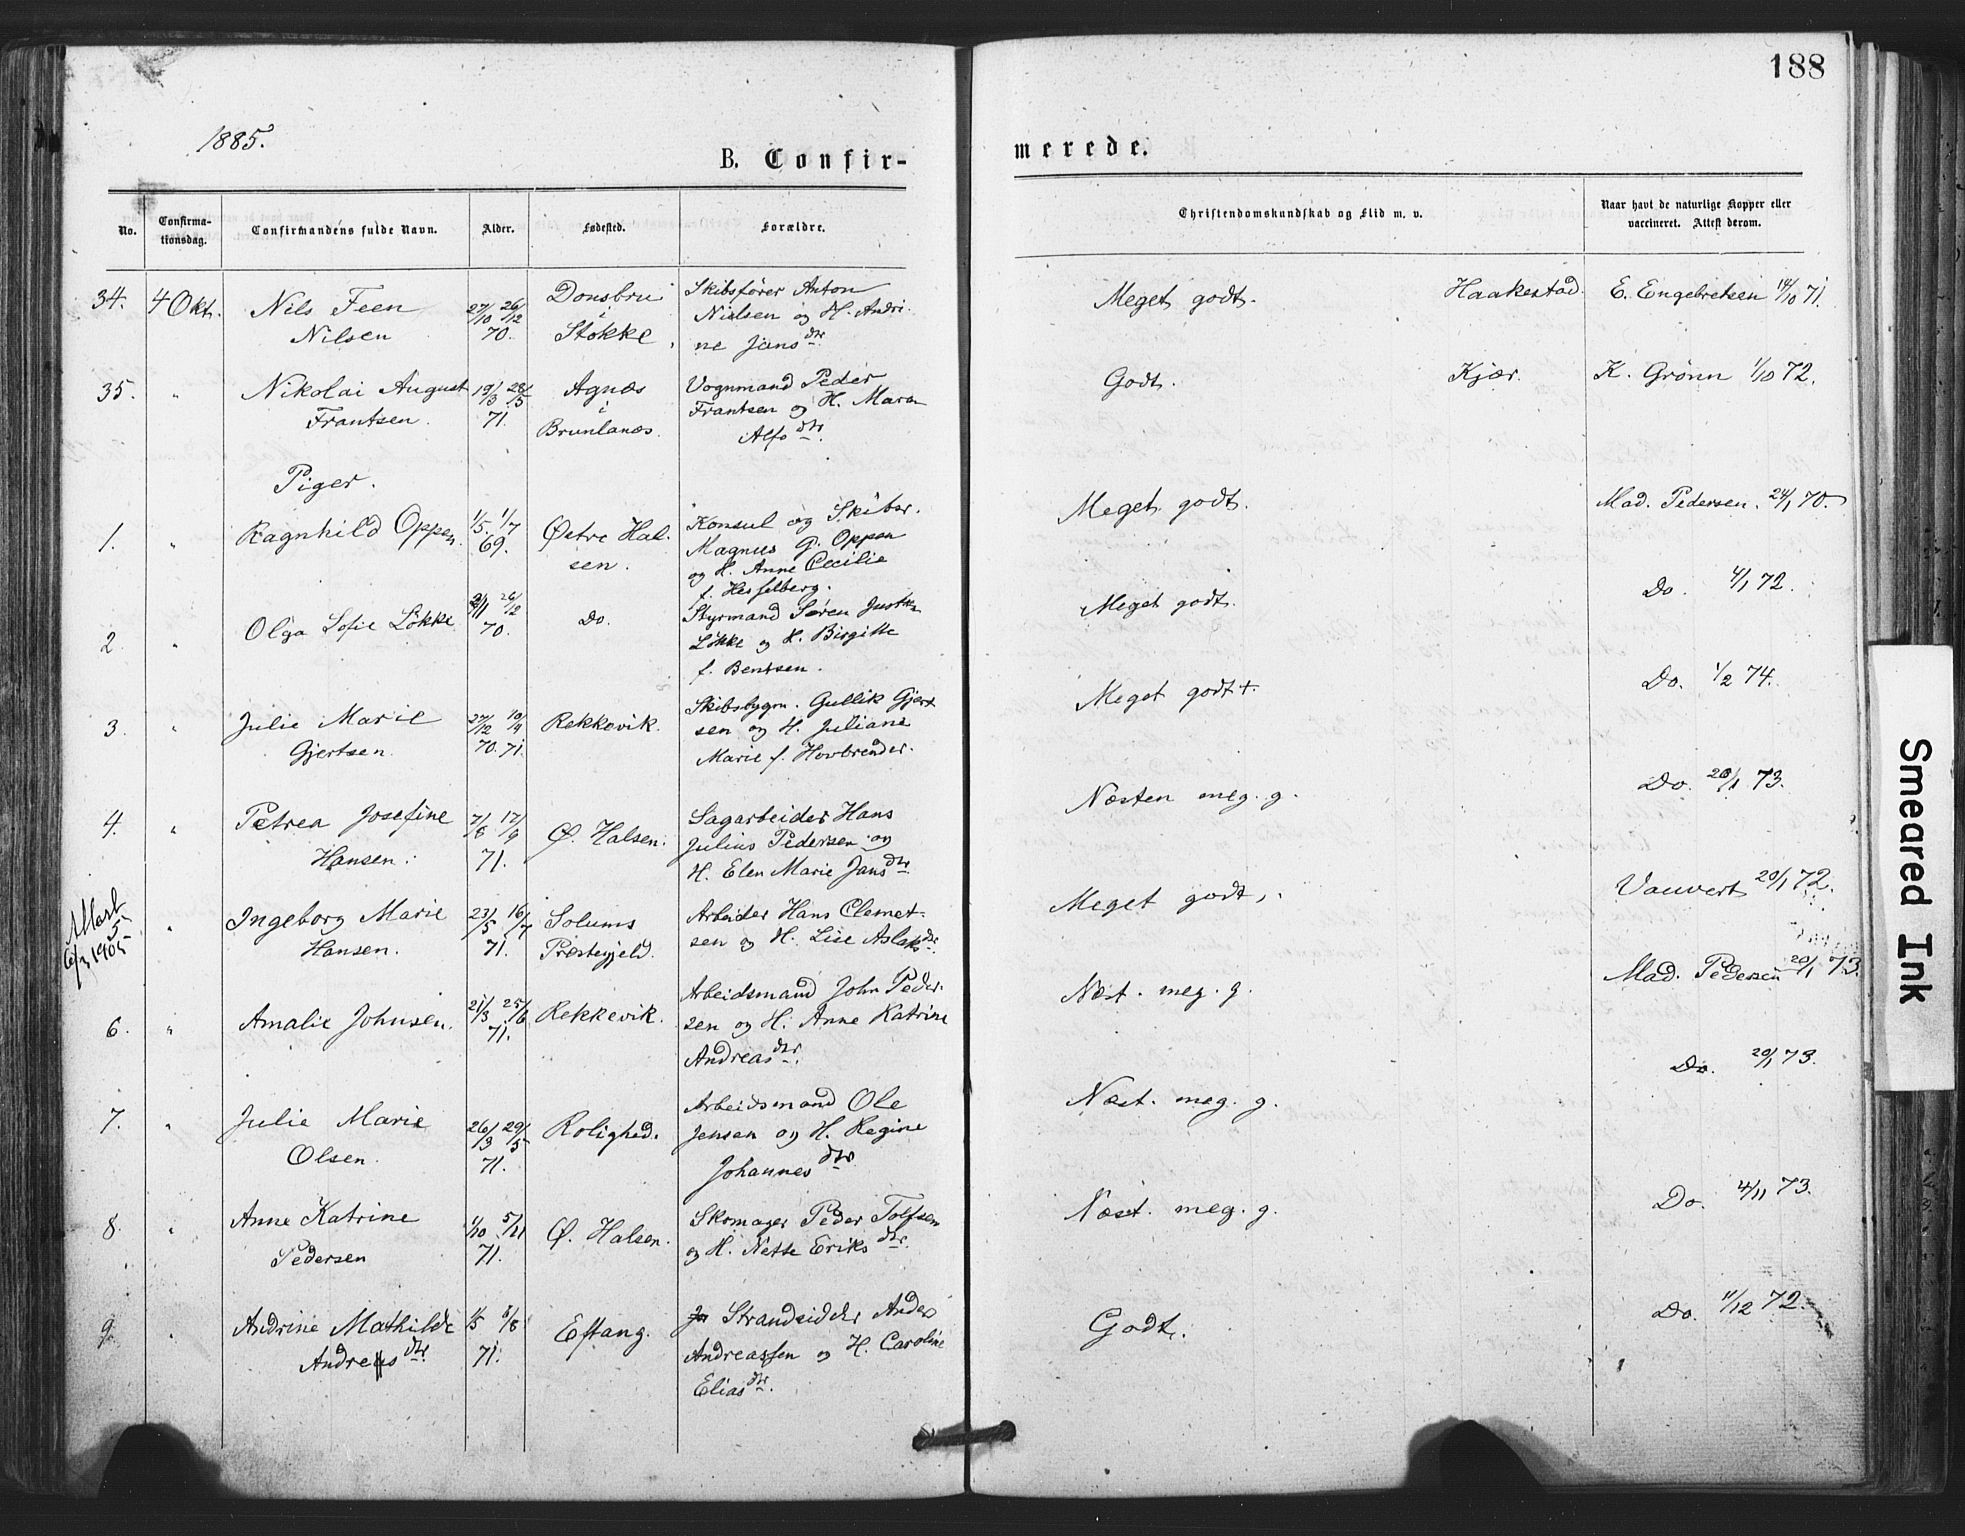 188
1885.
B. Confir-
merede.
No.
Confirma-
tionsdag.
Confirmandens fulde Navn.
Alder.
Fødested.
Forældre.
Christendomskundskab og Flid m. v.
Naar havt de naturlige Kopper eller
vaccineret. Attest derom.
34. 4 Okt. Nils Feen
Nilsen
27/10 26/12
70.
Donsbru
i
Stokke
Skibsfører Anton
Nielsen og H. Andri-
ne Jans dtr.
Meget godt. Haakestad. E. Engebretsen 14/10 71.
35. " Nikolai August
Frantsen.
19/3 28/5
71.
Agnæs
i
Brunlanæs.
Vognmand Peder
Frantsen og H. Maren
Alfs dtr.
Godt. Kjær. K. Grönn 1/10 72.
Piger.
1. " Ragnhild Oppen.
1/5. 1/7
69.
Østre Hal-
sen.
Konsul og Skibsr.
Magnus G. Oppen
og H. Anne Cecilie
f. Hesselberg.
Meget godt. Mad. Pedersen. 24/1 70.
2 " Olga Sofie Løkke
26/12
70.
Do.
Styrmand Søren
Løkke og H. Birgitte
f. Bentsen.
Meget godt. Do. 4/1 72.
3 " Julie Marie
Gjertsen.
27/12 10/4
70. 71.
Rekkevik.
Skibsbygm. Gullik Gjert-
sen og H. Juliane
Marie f. Hovbrender.
Meget godt +. Do. 1/2 74.
4. " Petrea Josefine
Hansen.
7/8 17/9
71.
Ø. Halsen.
Sagarbeider Hans
Julius Pedersen og
H. Elen Marie Jans dtr.
Næsten meg. g. Do. 20/1 73.
Attest
6/3 1905
5
" Ingeborg Marie
Hansen.
23/5 16/7
71.
Solums
Præstegjeld.
Arbeider Hans Clemet-
sen og H. Lise Aslaks dtr.
Meget godt. Vauvert 20/1 72.
6. " Amalie Johnsen.
21/3 25/6
71.
Rekkevik.
Arbeidsmand John Peder-
sen og H. Anne Katrine
Andreas dtr.
Næst. meg. g. Mad. Pedersen 20/1 73.
7. " Julie Marie
Olsen.
26/3 29/5
71.
Rolighed.
Arbeidsmand Ole
Jensen og H. Regine
Johannes dtr.
Næst. meg. g. Do. 20/1 73.
8. " Anne Katrine
Pedersen
1/10 5/11
71.
Ø. Halsen.
Skomager Peder Tolfsen
og H. Nette Eriks dtr.
Næst. meg. g. Do. 4/11 73.
9. " Andrine Mathilde
Andreas dtr.
1/5 6/8
71.
Eftang.
Strandsidder Anders
Andreassen og H. Caroline
Elias dtr.
Godt. Do. 11/12 72.
Smeared Ink